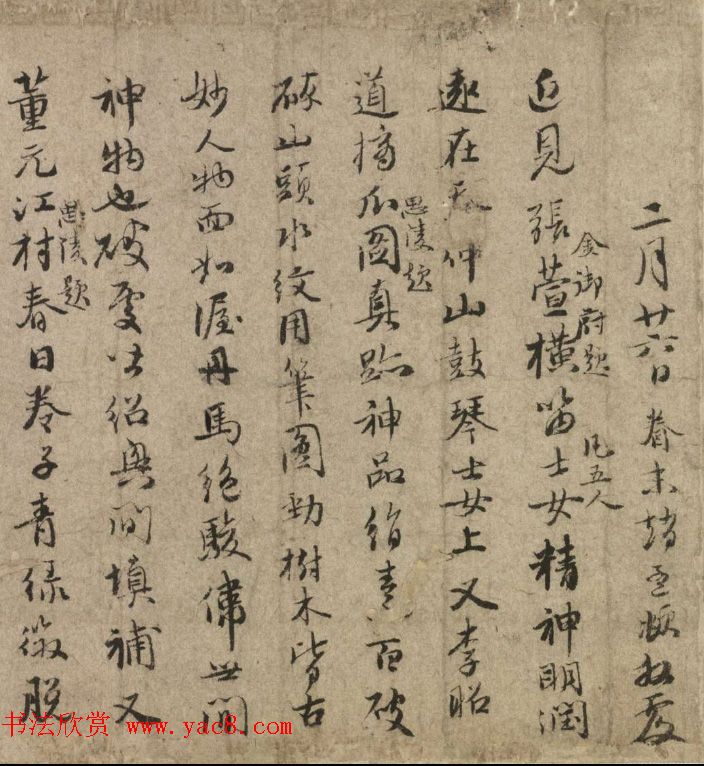 二月廿六日眷末赵孟頫拜覆
近見張萱橫笛士女精神明潤
金御府題
凡五人
遠在天仲山鼓琴士女上又李昭
道摘瓜圖真跡神品絹素百破
思陵題
碎山頭水紋用筆圓勁樹木皆古
妙人物面如渥丹馬絕駿偉世間
神物也破處皆紹興間填補又
董元江村春日卷子青綠微脫
思陵題
书法欣赏 www.yac8.com